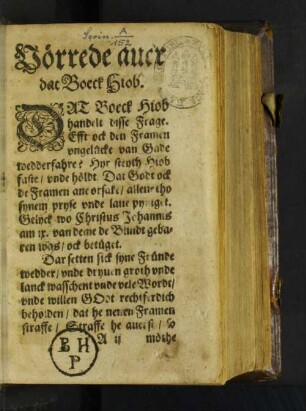 Scrin. A
152
Vörrede auer
dat Boeck Hiob.
DAT Boeck Hiob
handelt disse Frage.
Efft ock den Framen
vngelücke van Gade
wedderfahre? Hyr steyth Hiob
faste / vnde höldt. Dat Godt ock
de Framen ane orsake / allene tho
synem pryse vnde laue pyniget.
Gelyck wo Christus Johannis
am ix. van deme de Blindt geba-
ren was / ock betüget.
Dar setten sick syne Fründe
wedder / vnde dryuen groth vnde
lanck wasschent vnde vele Wordt /
vnde willen GOdt rechtferdich
beholden / dat he nenen Framen
straffe / Straffe he auerst / so
A ij möthe
B H
P